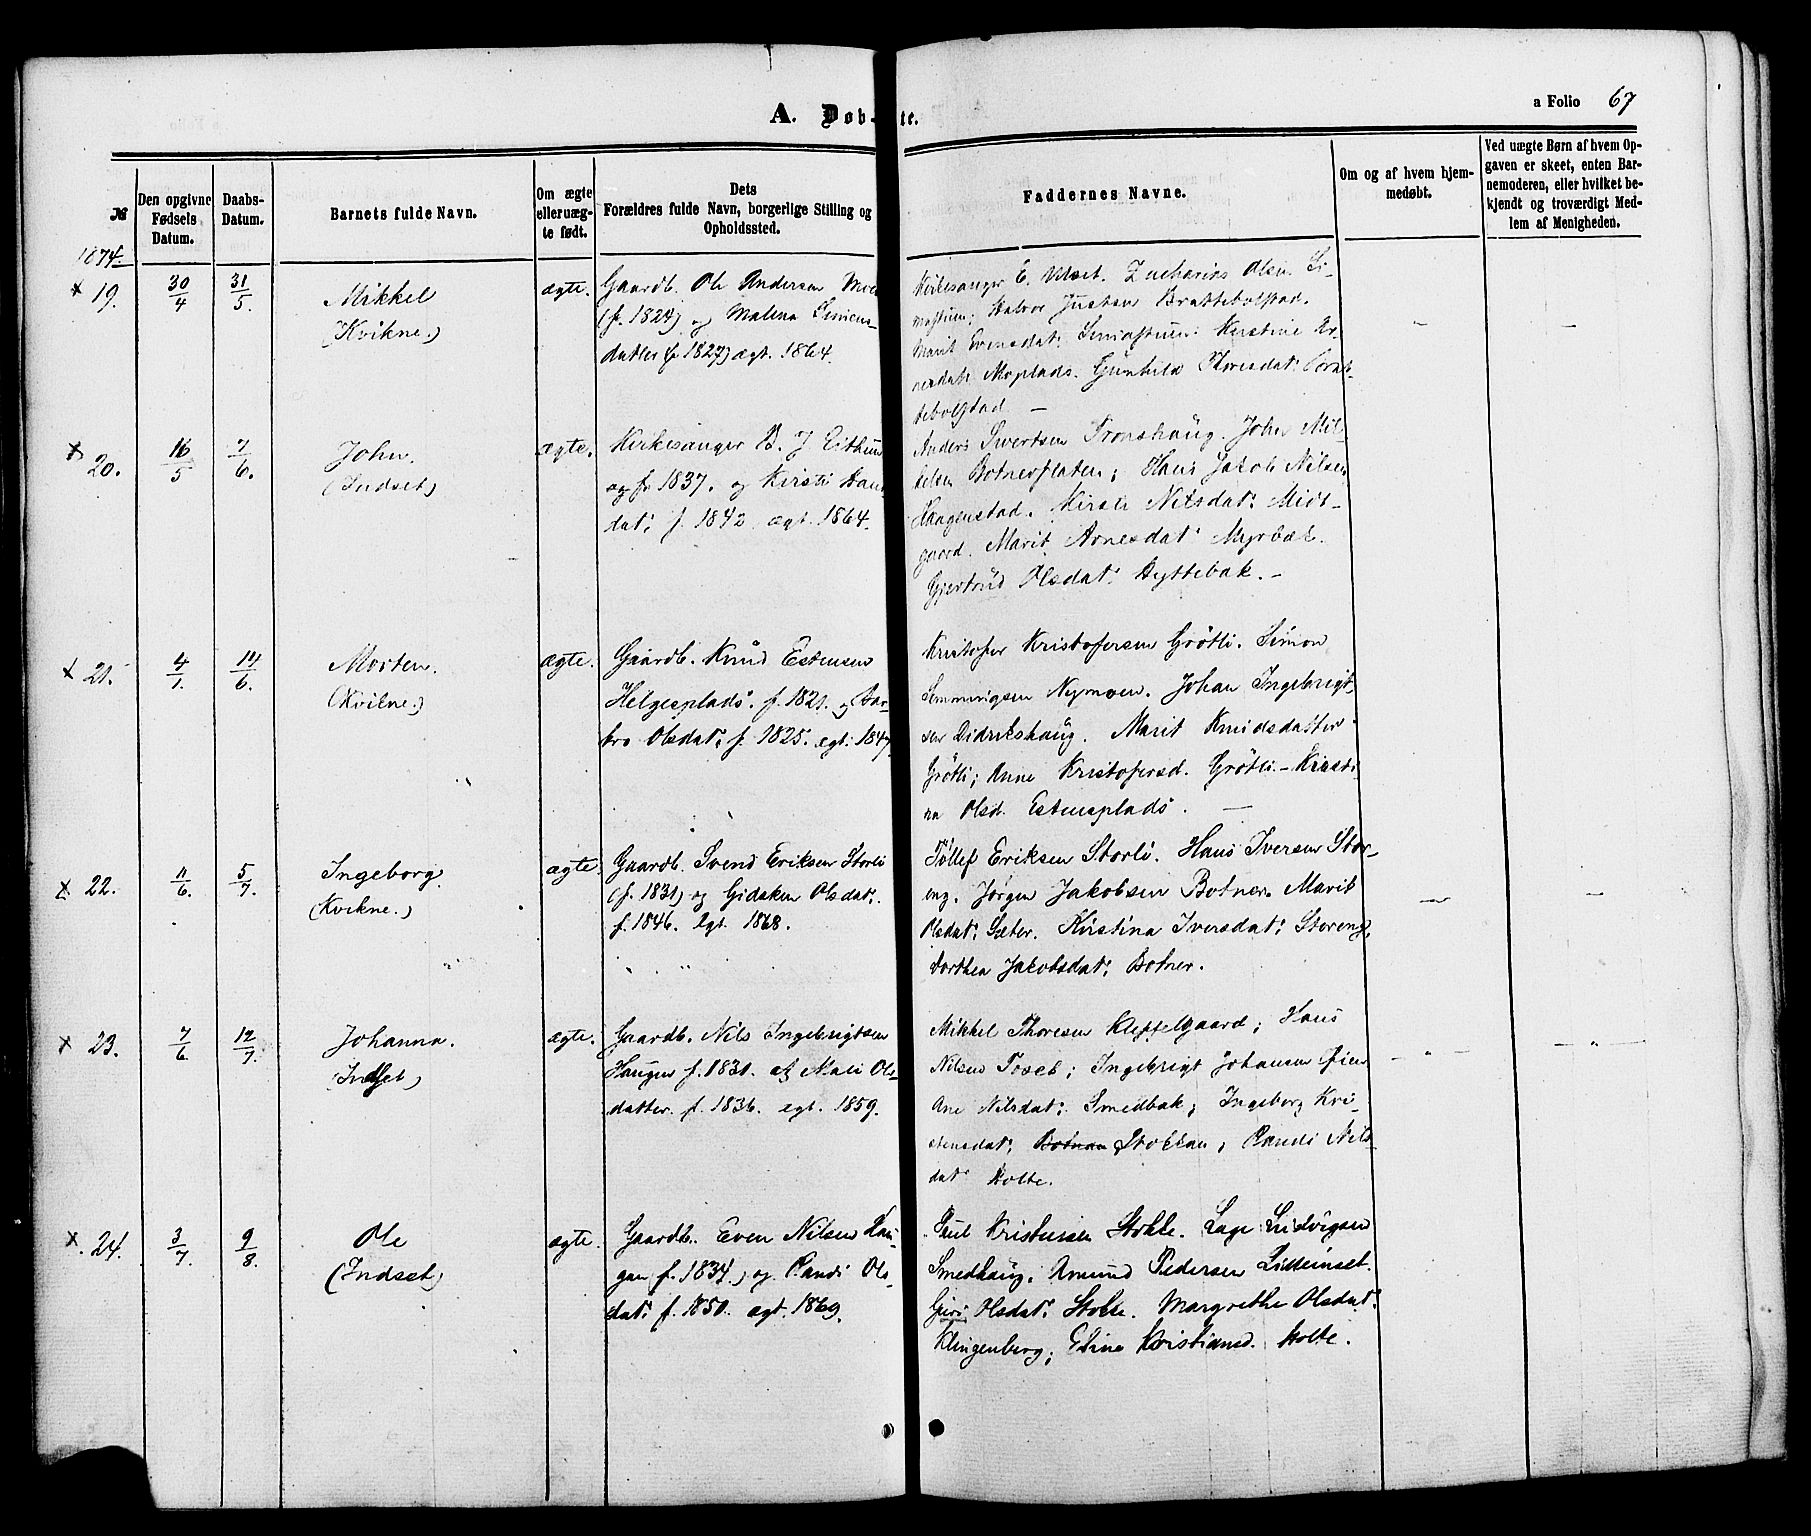 A. Døb- te.
a Folio 67
№
Den opgivne
Fødsels
Datum.
Daabs-
Datum.
Barnets fulde Navn.
Om ægte
eller uæg-
te født.
Dets
Forældres fulde Navn, borgerlige Stilling og
Opholdssted.
Faddernes Navne.
Om og af hvem hjem-
medøbt.
Ved uægte Børn af hvem Op-
gaven er skeet, enten Bar-
nemoderen, eller hvilket be-
kjendt og troværdigt Med-
lem af Menigheden.
1874.
× 19.
30/4
31/5.
Mikkel
(Kvikne.)
ægte.
Gaardb. Ole Andersen Moe
(f. 1824) og Malena
datter (f 1827) ægt. 1864.
Kirkesanger E. Zacharias Olsen
Halvor Justsen Brattebolstad.
Marit Evensdat: Kristine
Moplads. Gunhild Thoresdat: Brat-
tebolstad —
× 20.
16/5
7/6.
John.
(Indset)
ægte.
Kirkesanger B. J
og f. 1837. og Kirsti Hans
dat: f. 1842 ægt. 1864.
Anders Sivertsen Tronshaug. John Mik-
kelsen Botnerflaten; Hans Jakob Nilsen
Haagenstad. Kirsti Nilsdat: Midt-
gaard. Marit Arnesdat: Myrbæk.
Gjertrud Olsdat: Hyttebak. –
× 21.
4/1.
14/6.
Morten.
(Kvikne.)
ægte.
Gaardb. Knud Estensen
Helgesplads. f. 1821. og Bar-
bro Olsdat: f. 1825. ægt: 1847
Kristofer Kristofersen Grötli. Simon
Semmingsen Nymoen. Johan Ingebrigt-
sen Didrikshaug. Marit Knudsdatter
Grötli; Anne Kristofersd. Grötli – Kirsti-
na Olsd. Estensplads. —
× 22.
11/6.
5/7.
Ingeborg.
(Kvikne.)
ægte.
Gaardb. Svend Eriksen Storli
(f. 1831) og Gidsken Olsdat:
f. 1846. Egt. 1868.
Tollef Eriksen Storli. Hans Iversen Stor-
eng. Jørgen Jakobsen Botner. Marit
Olsdat: Sæter. Kristina Iversdat: Storeng.
Dorthea Jakobsdat: Botner.
× 23.
7/6
12/7.
Johanna.
(Indset)
ægte.
Gaardb. Nils Ingebrigtsen
Haugen f. 1831. og Mali Ols-
datter. f. 1836. egt. 1859.
Mikkel Thoresen Kleppelgaard; Hans
Nilsen Toset; Ingebrigt Johansen Øien
Ane Nilsdat: Smedbak; Ingeborg Kri-
stensdat: Botnan Stokkan; Randi Nils-
dat Holte.
×. 24.
3/7.
9/8.
Ole
(Indset)
ægte.
Gaardb. Even Nilsen Hau-
gan (f. 1834.) og Randi Ols-
dat: f. 1850. ægt. 1869.
Paul Kristensen Stokke. Lage Ludvigsen
Smedhaug. Amund Pedersen Litleinset.
Guri Olsdat: Stokke. Margrethe Olsdat:
Klingenberg; Elina Kristiansd. Holte.